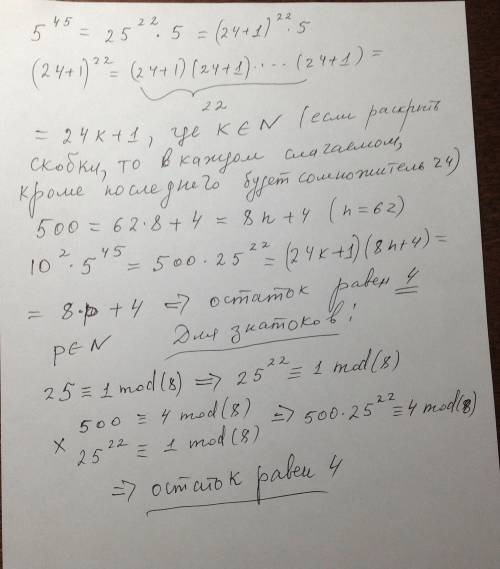 5^45 = 25^22 · 5 = (24+1)^22 · 5
(24+1)^22 = (24+1)(24+1)····(24+1) =
22
= 24k+1, где k∈N (если раскрыть
скобки, то в каждом слагаемом,
кроме последнего будет сомножитель 24)
500 = 62·8+4 = 8n+4 (n=62)
10^2 · 5^45 = 500 · 25^22 = (24k+1)(8n+4) =
= 8·p + 4 => остаток равен 4
p∈N Для знатоков!
25 ≡ 1 mod(8) => 25^22 ≡ 1 mod(8)
× 500 ≡ 4 mod(8) => 500·25^22 ≡ 4 mod(8)
25^22 ≡ 1 mod(8)
=> остаток равен 4